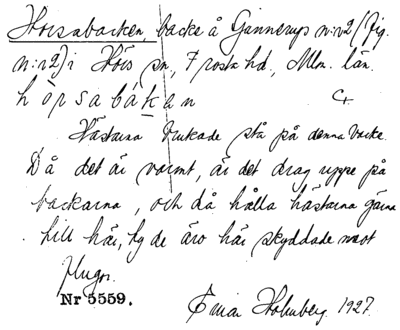 Horsabacken, backe å Gunnerups n:r 2 (fig.
n:r 2) i Hörs sn, Frosta hd, Mlm. län.
hòrsabákan
Hästarna brukade stå på denna backe.
Då det är varmt, är det drag uppe på
backarna, och då hålla hästarna gärna
till här, ty de äro här skyddade mot
flugor.
Nr 5559. Einar Holmberg. 1927.